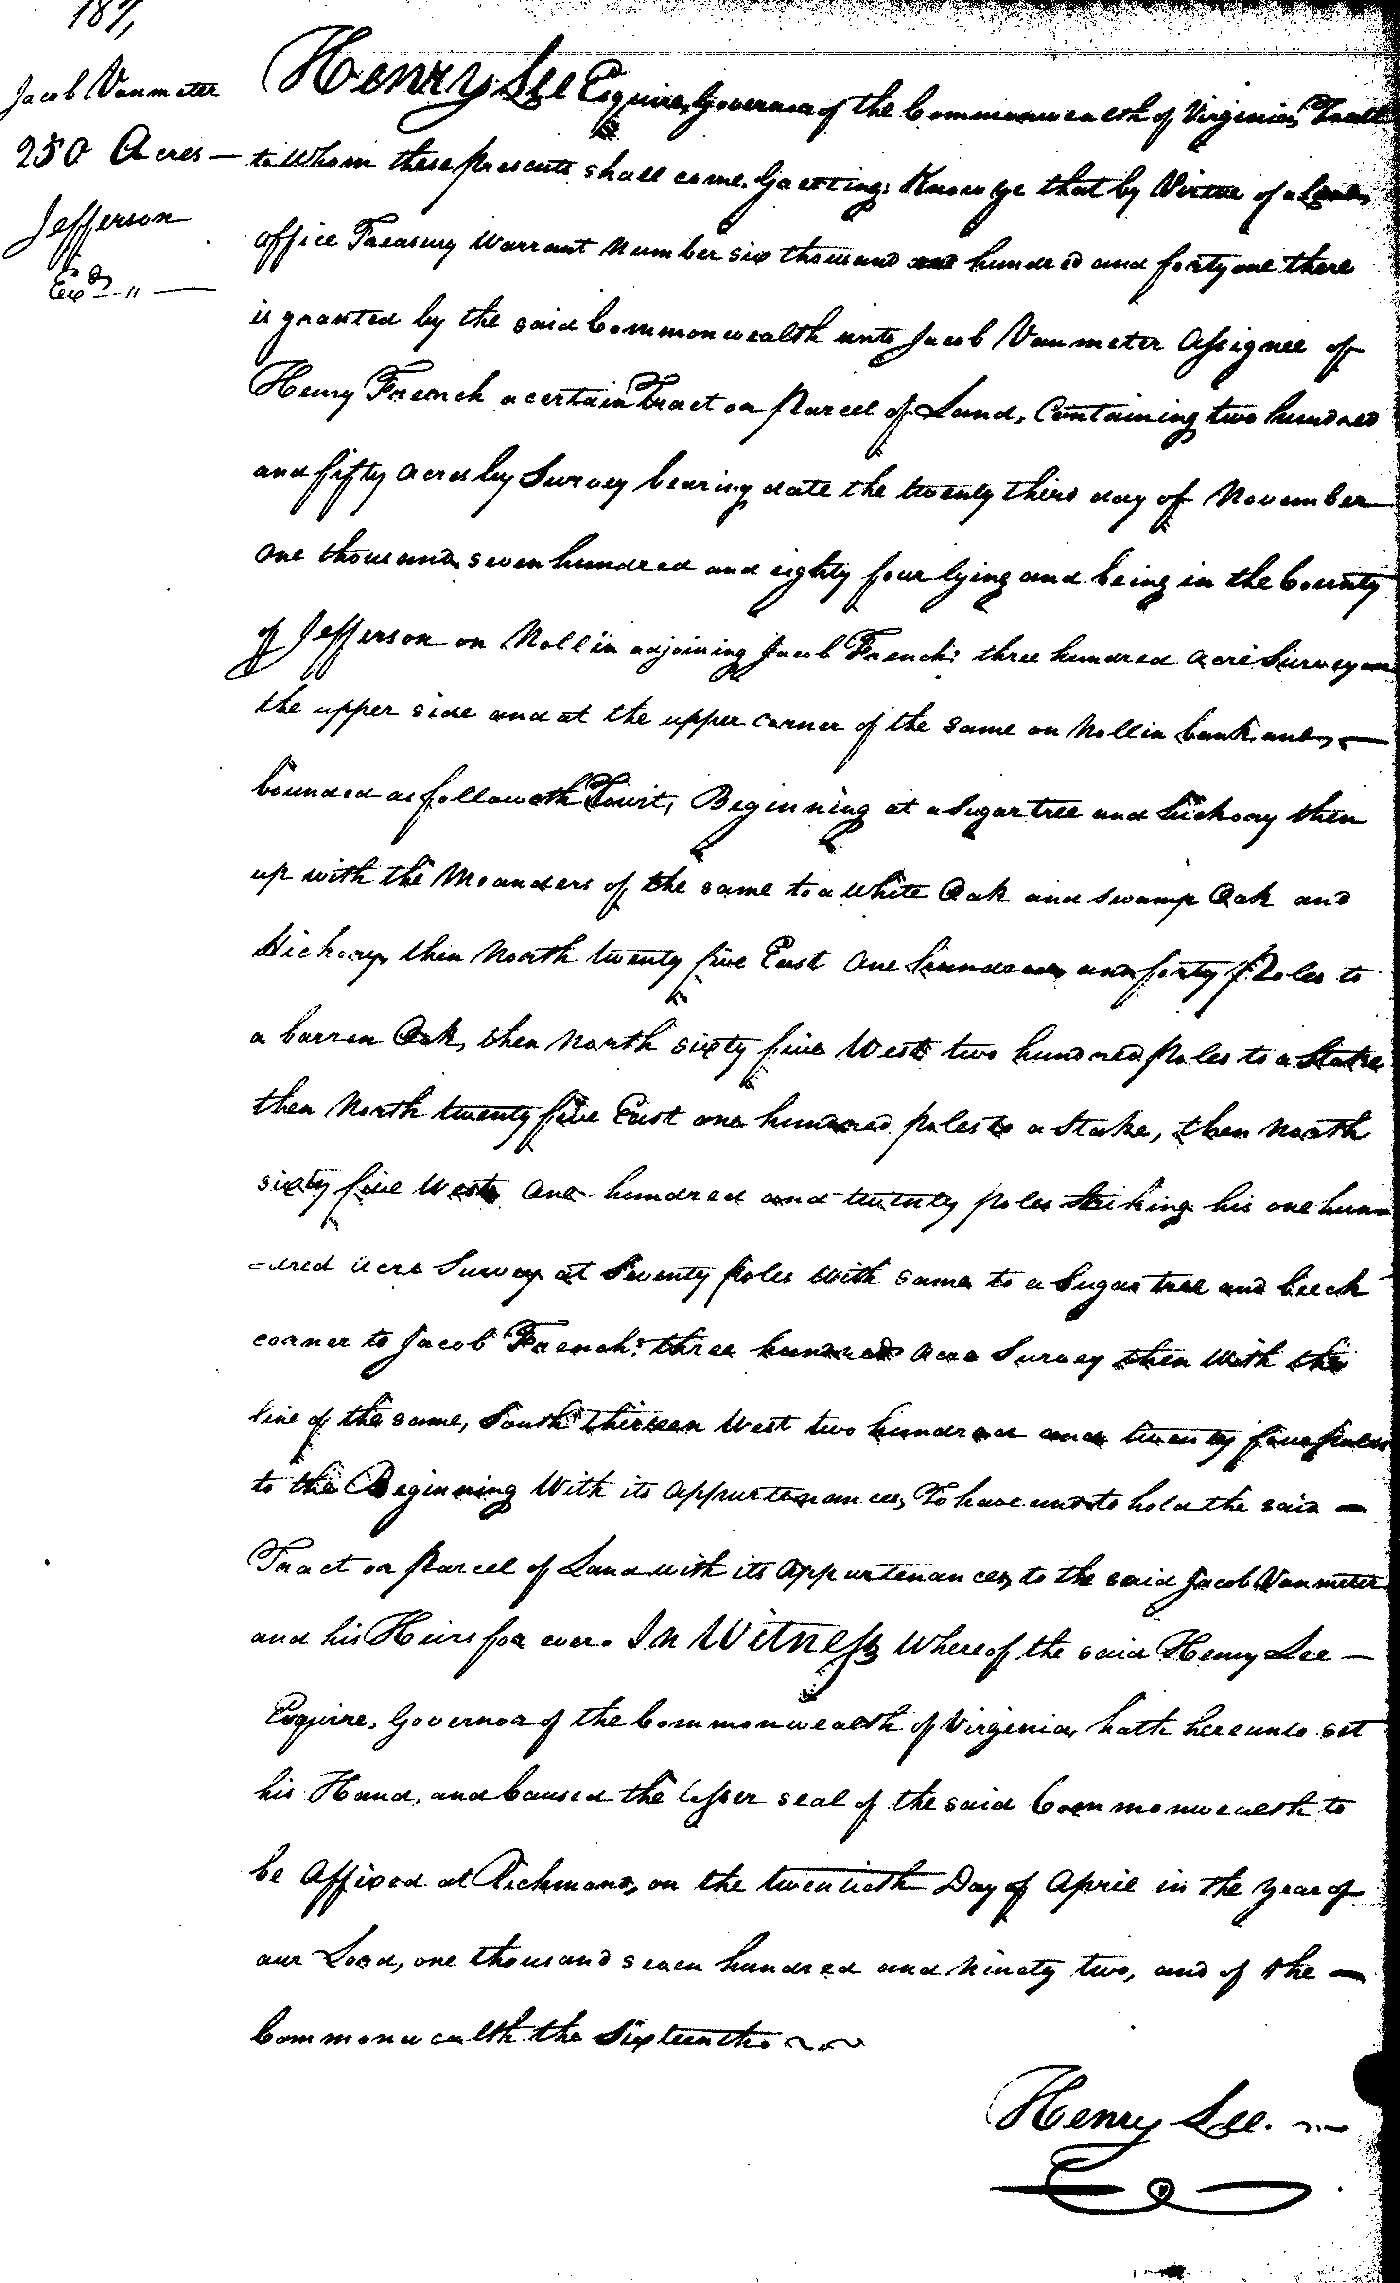 187,
Jacob Vanmeter
250 Acres —
Jefferson
Exd. „ —
Henry Lee Esquire, Governor of the Commonwealth of Virginia, To all
to Whom these presents shall come. Greeting; Know ye that by Virtue of a Land
office Treasury Warrant Number six thousand one hundred and forty one there
is granted by the said Commonwealth unto Jacob Vanmeter Assignee of
Henry French a certain Tract or Parcel of Land, Containing two hundred
and fifty Acres by Survey bearing date the twenty third day of November
One thousand seven hundred and eighty four lying and being in the County
of Jefferson on Nollin adjoining Jacob French's three hundred acre Survey on
the upper side and at the upper corner of the same on Nollin bank and, —
bounded as followeth Towit, Beginning at a Sugar tree and hickory then
up with the Meanders of the same to a White Oak and swamp Oak and
Hickory, then North twenty five East One hundred and forty Poles to
a barren Oak, then North sixty five West two hundred Poles to a Stake
then North twenty five East one hundred poles to a Stake, then North
sixty five West One hundred and twenty poles Striking his one hun
-dred acre Survey at Seventy poles With same to a Sugar tree and beech
corner to Jacob French's three hundred Acre Survey then With the
line of the same, South thirteen West two hundred and twenty four poles
to the Beginning With its Appurtenances, To have and to hold the said —
Tract or Parcel of Land with its Appurtenances, to the said Jacob Vanmeter
and his Heirs for ever. In Witness Whereof the said Henry Lee —
Esquire, Governor of the Commonwealth of Virginia, hath hereunto set
his Hand, and Caused the lesser seal of the said Commonwealth to
be Affixed at Richmond, on the twentieth Day of April in the Year of
our Lord, one thousand seven hundred and Ninety two, and of the —
Commonwealth the Sixteenth
Henry Lee.